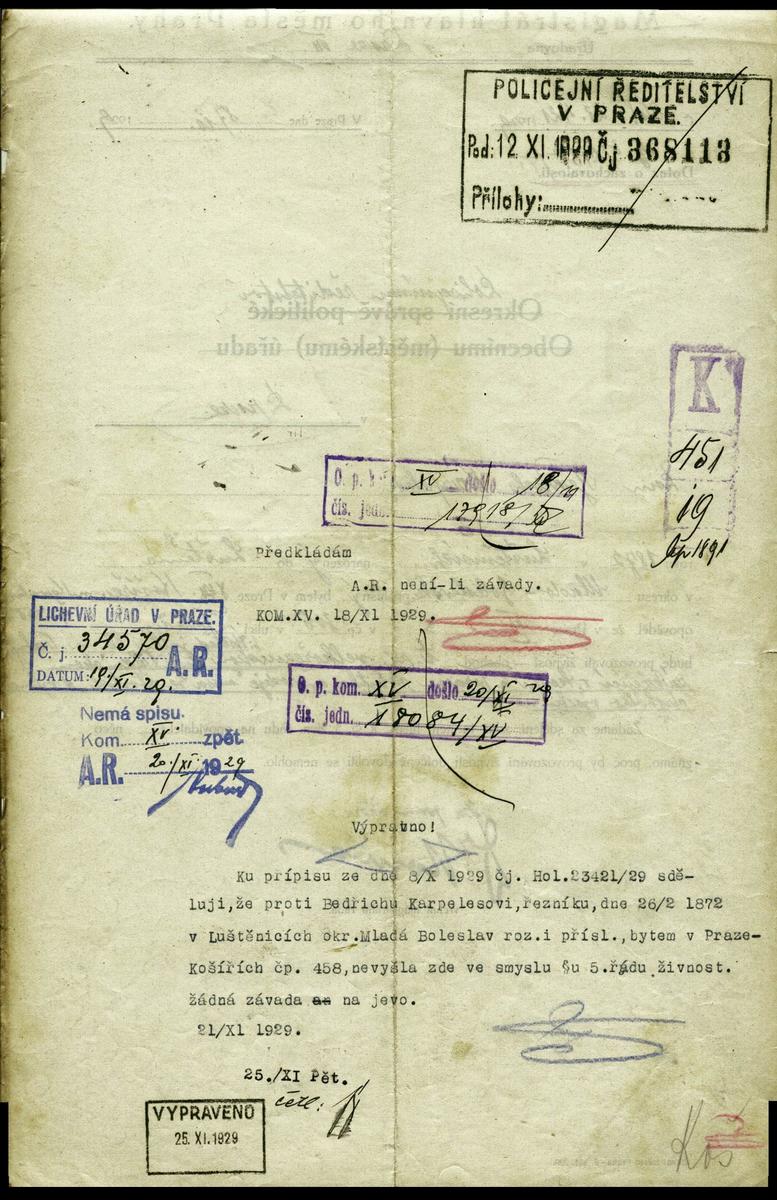 POLICEJNÍ ŘEDITELSTVÍ
V PRAZE.
Pod: 12 XI. 1929 Čj 368113
Přílohy:
K
451
19
O. p. k. XV došlo 18/XI
čís. jedn.
Předkládám
A.R. není-li závady.
KOM.XV. 18/XI 1929.
LICHEVNÍ ÚŘAD V PRAZE.
Č. j. 34570 A.R.
DATUM: 19/XI. 29.
O. p. kom. XV došlo 20/XI 29
čís. jedn. 18084/XV
Nemá spisu.
Kom. XV. zpět.
A.R. 20/XI 1929
Výpravno!
Ku prípisu ze dne 8/X 1929 čj. Hol.23421/29 sdě-
luji,že proti Bedřichu Karpelesovi,řezníku,dne 26/2 1872
v Luštěnicích okr.Mladá Boleslav roz.i přísl.,bytem v Praze-
Košířích čp. 458,nevyšla zde ve smyslu §u 5.řádu živnost.
žádná závada na jevo.
21/XI 1929.
25./XI Pět.
četl:
VYPRAVENO
25. XI. 1929
Koš